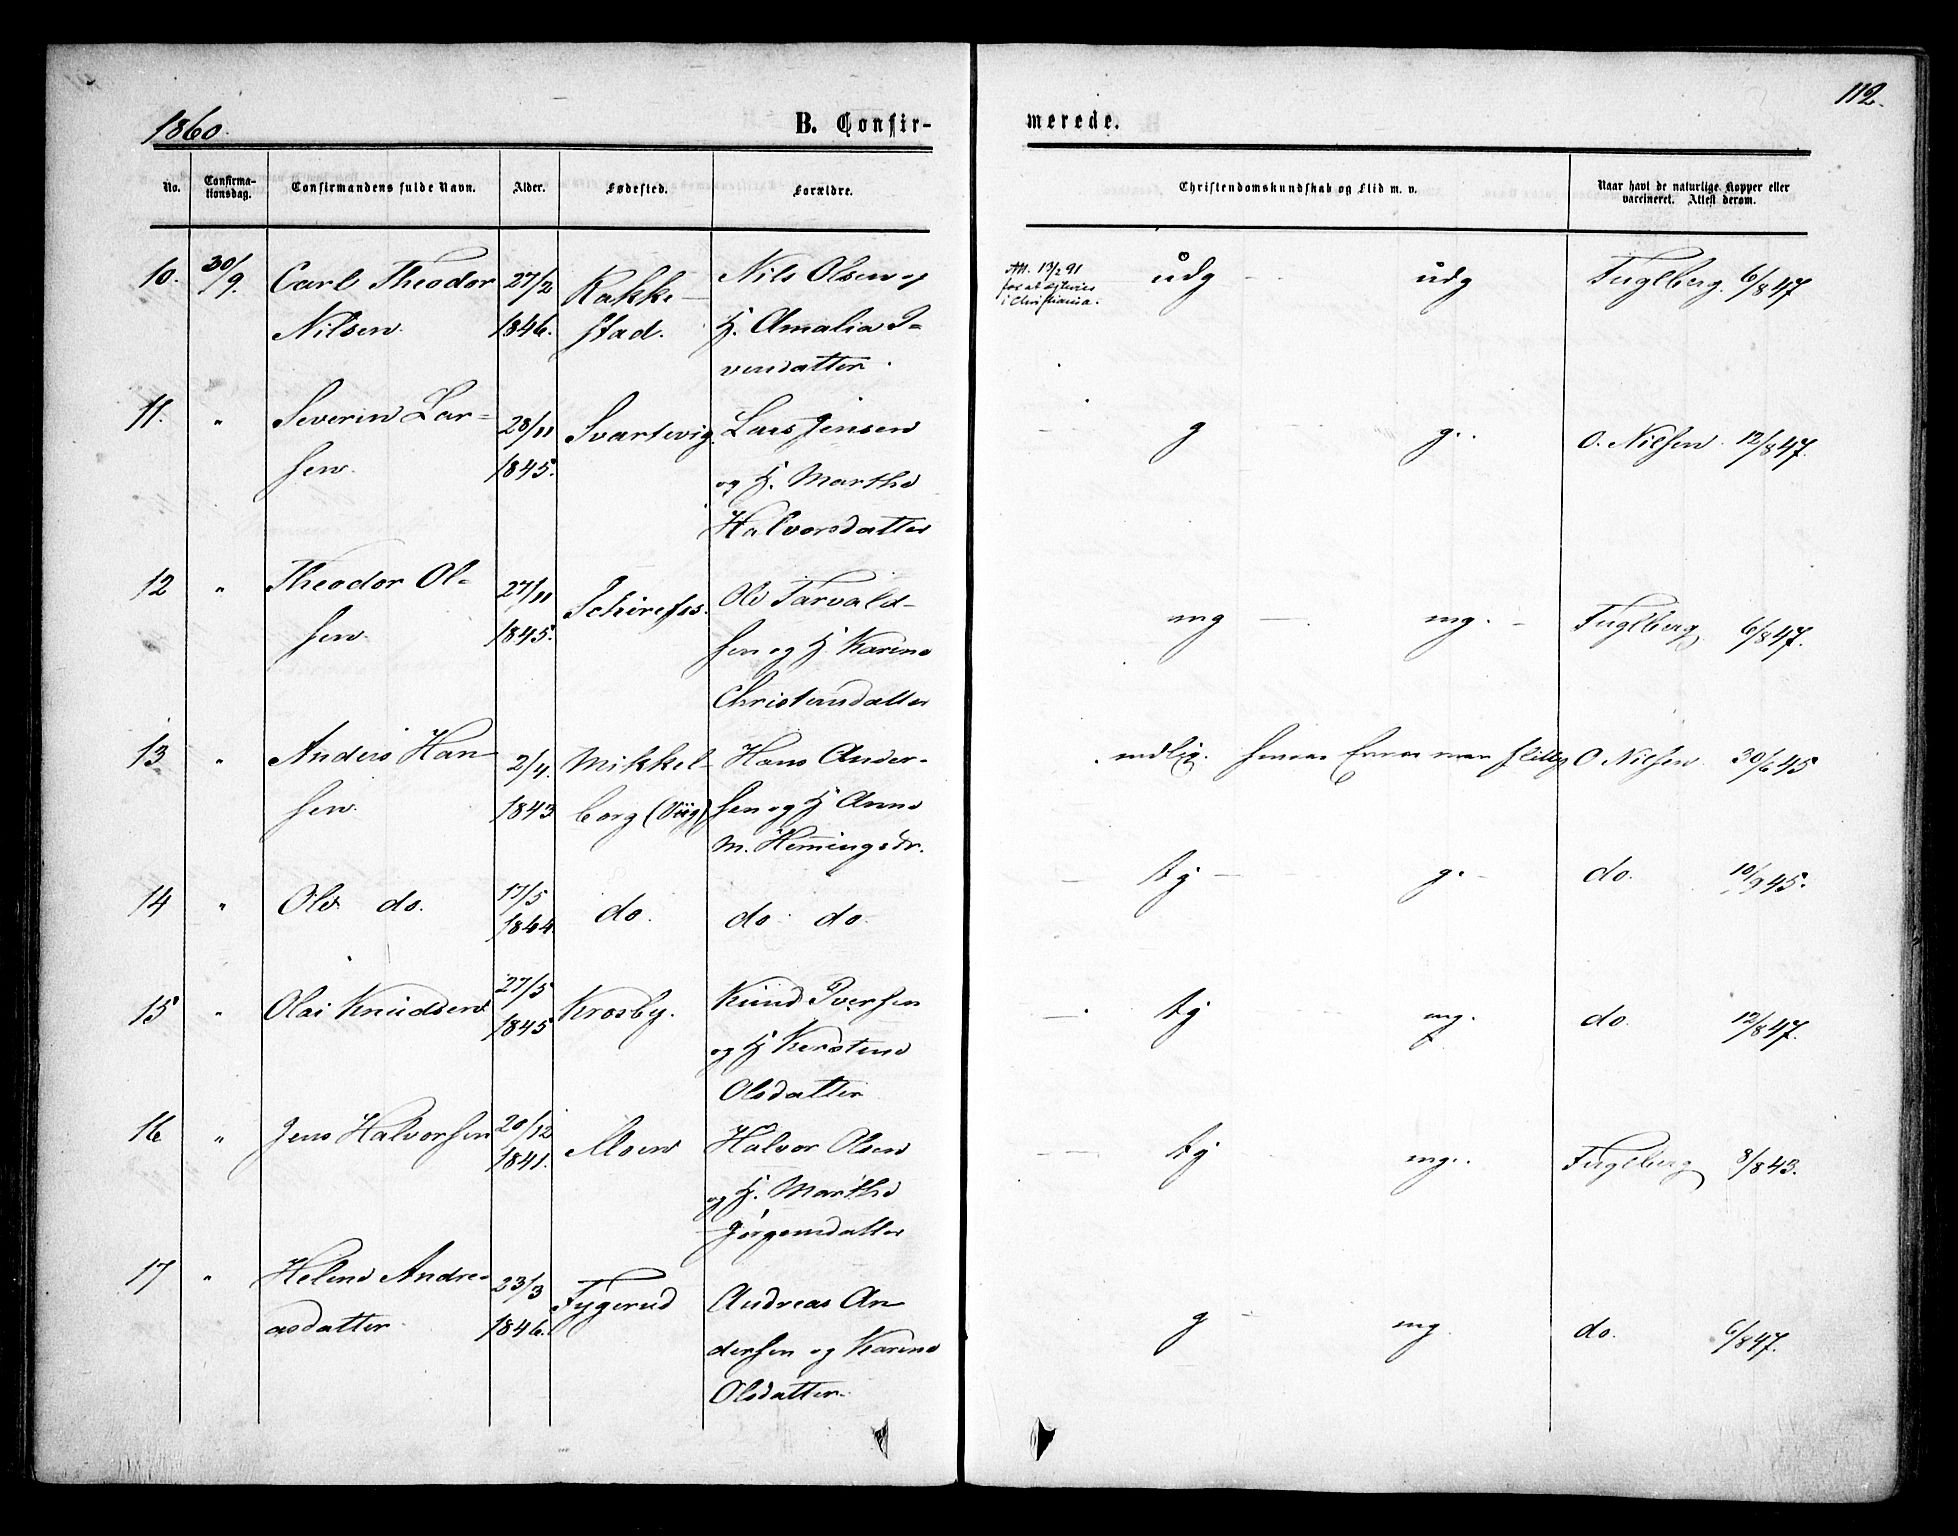 112.
1860.
B. Confir-
merede.
No.
Confirma-
tionsdag.
Confirmandens fulde Navn.
Alder.
Fødested.
Forældre.
Christendomskundskab og Flid m. v.
Naar havt de naturlige Kopper eller
vaccineret. Attest derom.
10. 30/9. Carl Theodor 27/2 Rakke- Nils Olsen og
Nilsen 1846. stad. H. Amalia I-
vendatter.
Att. 13/2 91
i Christiania.
udg udg Fuglberg. 6/8 47
11. " Severin Lar- 28/11 Svartevig. Lars Jensen
sen. 1845. og H. Marthe
Halvorsdatter
g g. O. Nilsen. 12/8 47.
12 " Theodor Ol- 27/11 Ole Torvald-
sen. 1845. sen og H. Karine
Christensdatter
mg mg. Fuglberg 6/8 47.
13 " Anders Han- 2/4. Mikkel- Hans Ander-
sen. 1843 borg (Viig) sen og H Anne
M. Hemingsdr.
mdlg. O Nilsen 30/6 45
14 " Ole do. 17/5 do. do do.
1844.
tg g. do. 10/9 45.
15 " Olai Knudsen 27/5 Krosby. Knud Iversen
1845 og H Kerstine
Olsdatter
tg mg. do. 12/8 47.
16 " Jens Halvorsen 20/12 Moen Halvor Olsen
1841. og H. Marthe
Jørgensdatter
tg mg. Fuglberg 8/8 43.
17 " Helene Andre- 23/3 Fygerud Andreas An
asdatter 1846. dersen og Karine
Olsdatter.
g mg. do. 6/8 47.